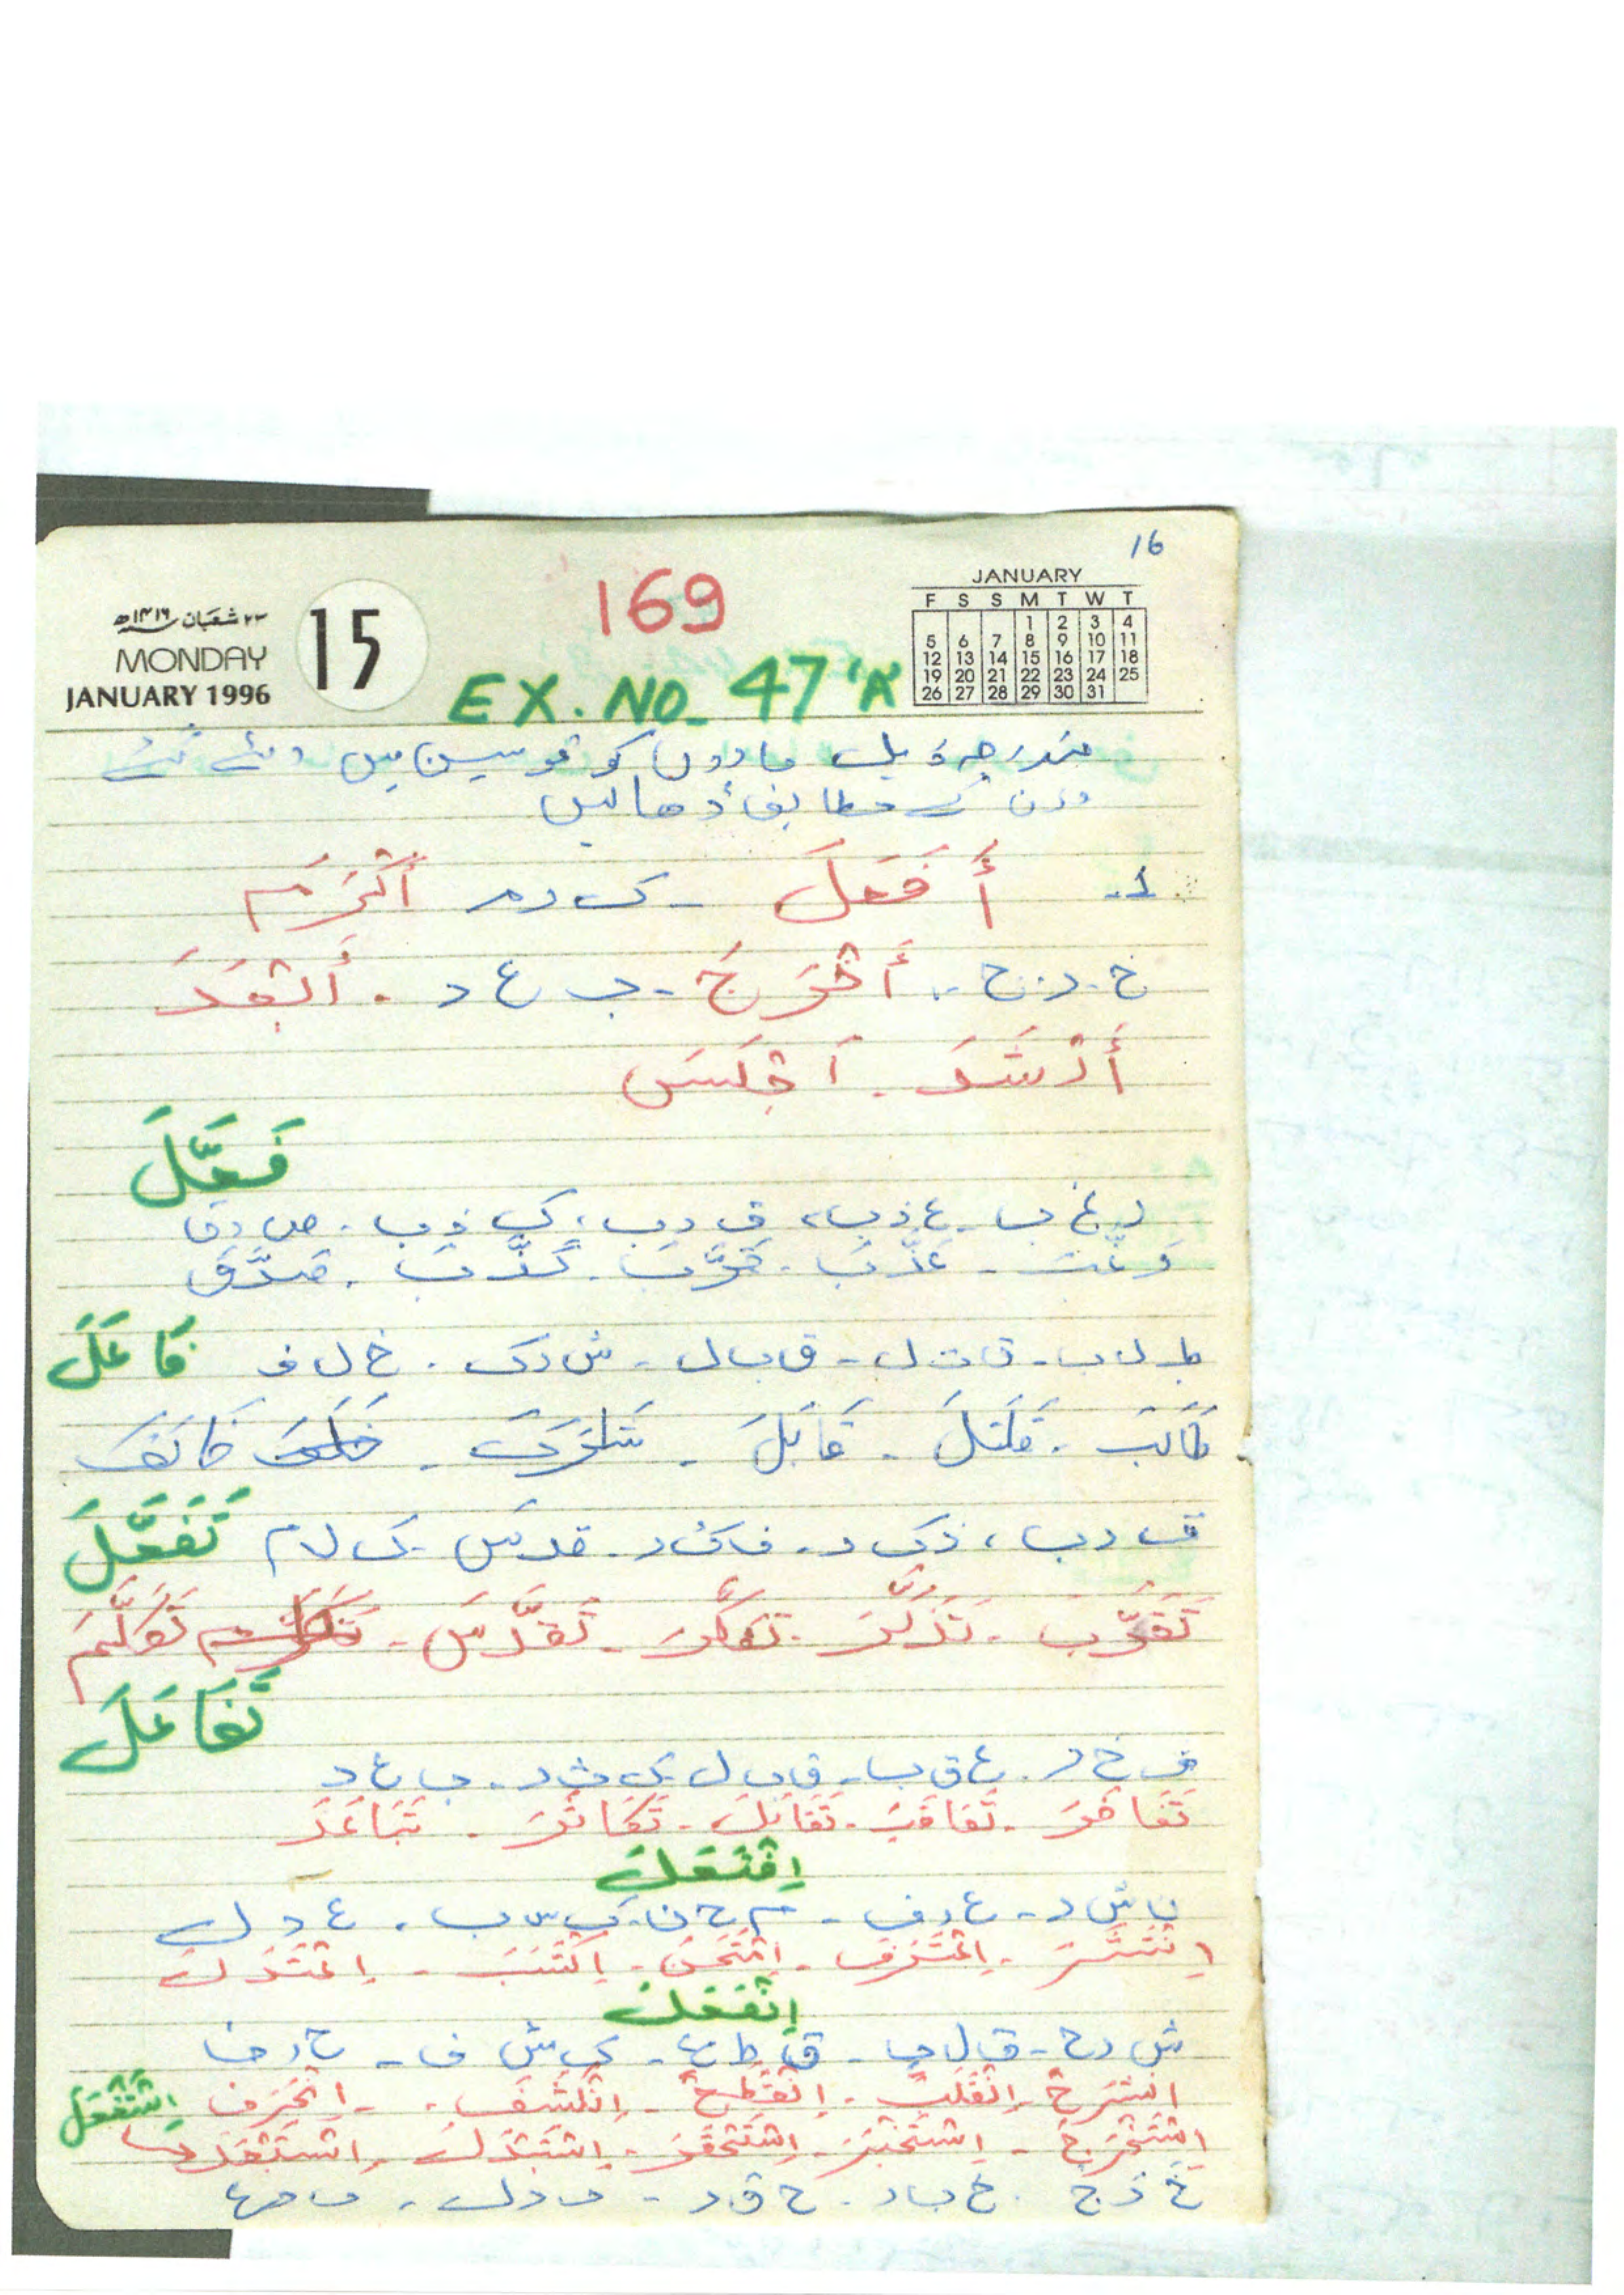 16
169
JANUARY
F S S M T W T
1 2 3 4
5 6 7 8 9 10 11
12 13 14 15 16 17 18
19 20 21 22 23 24 25
26 27 28 29 30 31
٢٣ شعبان ١٤١٦ھ
MONDAY
JANUARY 1996
15
EX. NO. 47 'A
مندرجہ ذیل مادوں کو قوسین میں دئے گئے
وزن کے مطابق ڈھالیں
1- أَفْعَلَ - ک ر م أَكْرَمَ
خ ر ج - أَخْرَجَ - ب ع د - أَبْعَدَ
أَرْشَدَ - أَجْلَسَ
فَعَّلَ
ر غ ب - ع ذ ب، ق ر ب، ک ذ ب - ص د ق
رَغَّبَ - عَذَّبَ - قَرَّبَ - كَذَّبَ - صَدَّقَ
ط ل ب - ق ت ل - ق ب ل - ش ر ک - خ ل ف فَاعَلَ
طَالَبَ - قَاتَلَ - قَابَلَ - شَارَكَ - خَالَفَ
ق ر ب، ذ ک ر - ف ک ر - ق د س - ک ل م تَفَعَّلَ
تَقَرَّبَ - تَذَكَّرَ - تَفَكَّرَ - تَقَدَّسَ - تَكَلَّمَ
تَفَاعَلَ
ف خ ر - ع ق ب - ق ب ل - ک ث ر - ب ع د
تَفَاخَرَ - تَعَاقَبَ - تَقَابَلَ - تَكَاثَرَ - تَبَاعَدَ
اِفْتَعَلَ
ن ش ر - ع ر ف - م ح ن - ک س ب - ع د ل
اِنْتَشَرَ - اِعْتَرَفَ - اِمْتَحَنَ - اِكْتَسَبَ - اِعْتَدَلَ
اِنْفَعَلَ
ش ر ح - ق ل ب - ق ط ع - ک ش ف - ح ر ف
اِنْشَرَحَ - اِنْقَلَبَ - اِنْقَطَعَ - اِنْكَشَفَ - اِنْحَرَفَ اِسْتَفْعَلَ
اِسْتَخْرَجَ - اِسْتَخْبَرَ - اِسْتَحْقَرَ - اِسْتَبْدَلَ
خ ر ج - خ ب ر - ح ق ر - ب د ل